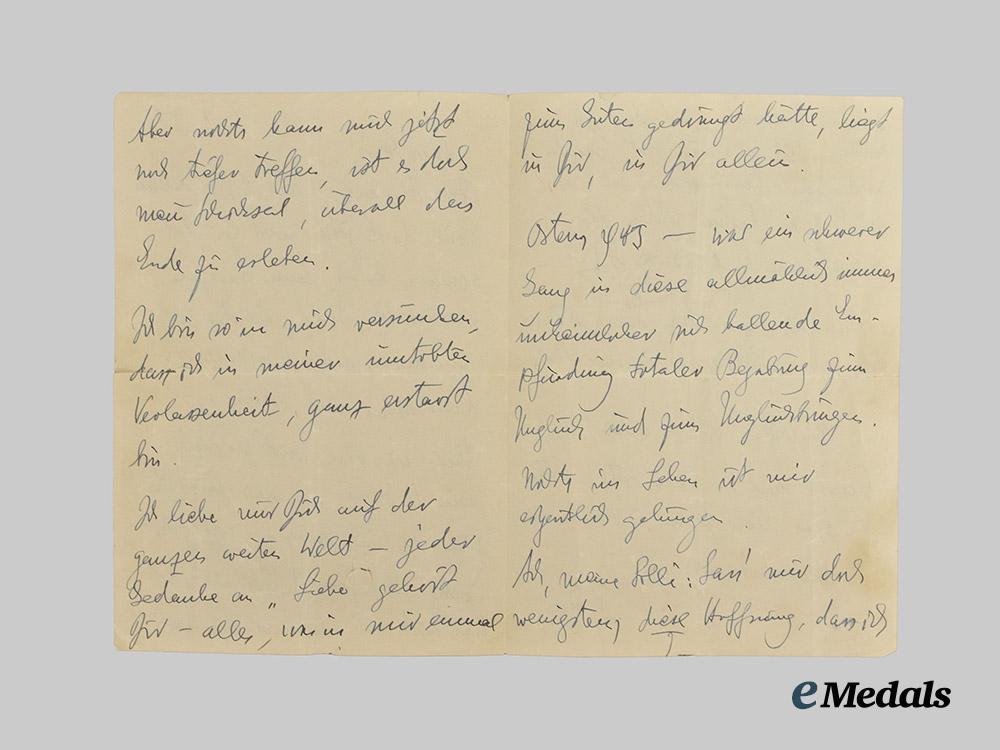 Aber nichts kann mich jetzt
noch tiefer treffen, ist es doch
mein Schicksal, überall das
Ende zu erleben.
Ich bin so in mich versunken,
dass ich in meiner umtobten
Verlassenheit, ganz erstarrt
bin.
Ich liebe nur Dich auf der
ganzen weiten Welt – jeder
Gedanke an „Liebe" gehört
Dir – alles, was in mir einmal
zum Guten gedrängt hätte, liegt
in Dir, in Dir allein.
Ostern 1945 — war ein schwerer
Gang in diese allmählich immer
unheimlicher sich ballende Em-
pfindung totaler Begabung zum
Unglück und zum Unglückbringen.
Nichts im Leben ist mir
eigentlich gelungen.
Ach, meine Lilli: Lass' mir doch
wenigstens diese Hoffnung, dass ich
eMedals